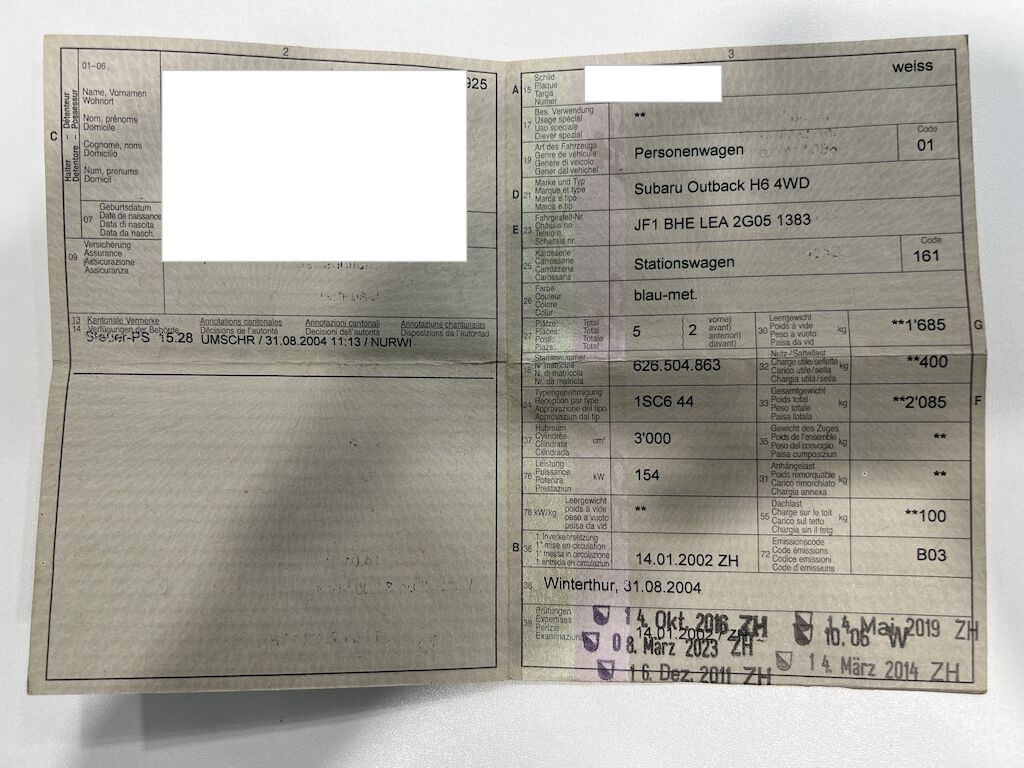 2
01–06.
C
Halter – Détenteur
Detentore – Possessur
Name, Vornamen
Wohnort
Nom, prénoms
Domicile
Cognome, nomi
Domicilio
Num, prenums
Domicil
925
07
Geburtsdatum
Date de naissance
Data di nascita
Data da nasch.
09
Versicherung
Assurance
Assicurazione
Assicuranza
13 Kantonale Vermerke Annotations cantonales Annotazioni cantonali Annotaziuns chantunalas
14 Verfügungen der Behörde Décisions de l'autorité Decisioni dell'autorità Disposiziuns da l'autoritad
Steuer-PS 15.28 UMSCHR / 31.08.2004 11:13 / NURWI
3
A 15
Schild
Plaque
Targa
Numer
weiss
17
Bes. Verwendung
Usage spécial
Uso speciale
Diever spezial
**
19
Art des Fahrzeugs
Genre de véhicule
Genere di veicolo
Gener dal vehichel
Personenwagen
Code
01
D 21
Marke und Typ
Marque et type
Marca e tipo
Marca e tip
Subaru Outback H6 4WD
E 23
Fahrgestell-Nr.
Châssis no
Telaio n.
Schassis nr.
JF1 BHE LEA 2G05 1383
25
Karosserie
Carrosserie
Carrozzeria
Carossaria
Stationswagen
Code
161
26
Farbe
Couleur
Colore
Colur
blau-met.
27
Plätze: Total
Places: Total
Posti: Totale
Plazs: Total
5
2
vorne)
avant)
anteriori)
davant)
30
Leergewicht
Poids à vide
Peso a vuoto
Paisa da vid
kg
**1'685
G
18
Stammnummer
N° matricule
N. di matricola
Nr. da matricla
626.504.863
32
Nutz-/Sattellast
Charge utile/sellette
Carico utile/sella
Chargia utila/sella
kg
**400
24
Typengenehmigung
Réception par type
Approvazione del tipo
Approvaziun dal tip
1SC6 44
33
Gesamtgewicht
Poids total
Peso totale
Paisa totala
kg
**2'085
F
37
Hubraum
Cylindrée
Cilindrata
Cilindrada
cm³
3'000
35
Gewicht des Zuges
Poids de l'ensemble
Peso del convoglio
Paisa cumposiziun
kg
**
76
Leistung
Puissance
Potenza
Prestaziun
kW
154
31
Anhängelast
Poids remorquable
Carico rimorchiato
Chargia annexa
kg
**
78 kW/kg
Leergewicht
poids à vide
peso a vuoto
paisa da vid
**
55
Dachlast
Charge sur le toit
Carico sul tetto
Chargia sin il tetg
kg
**100
B 36
1. Inverkehrsetzung
1re mise en circulation
1a messa in circolazione
1. entrada en circulaziun
14.01.2002 ZH
72
Emissionscode
Code émissions
Codice emissioni
Code d'emissiuns
B03
38
Winterthur, 31.08.2004
39
Prüfungen
Expertises
Perizie
Examinaziuns
14.01.2002 / ZH
1 4. Okt. 2016 ZH
1 4. Mai 2019 ZH
0 8. März 2023 ZH
10.06 W
1 6. Dez. 2011 ZH
1 4. März 2014 ZH